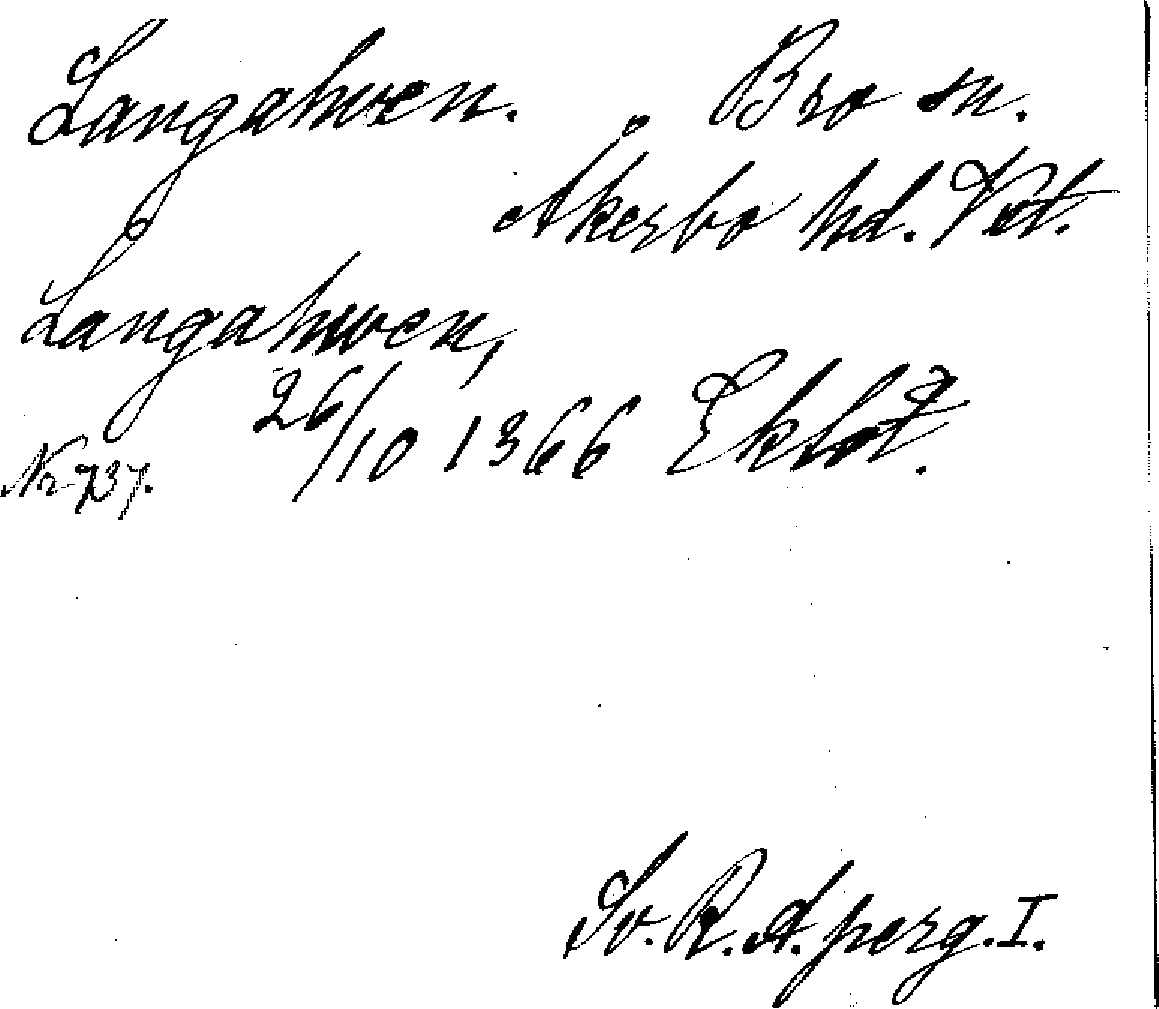 Langahwen. Bro sn.
Åkerbo hd. Vst.
Langahwen,
26/10 1366 Eklöf.
Nr 737.
Sv. R. A. perg. I.